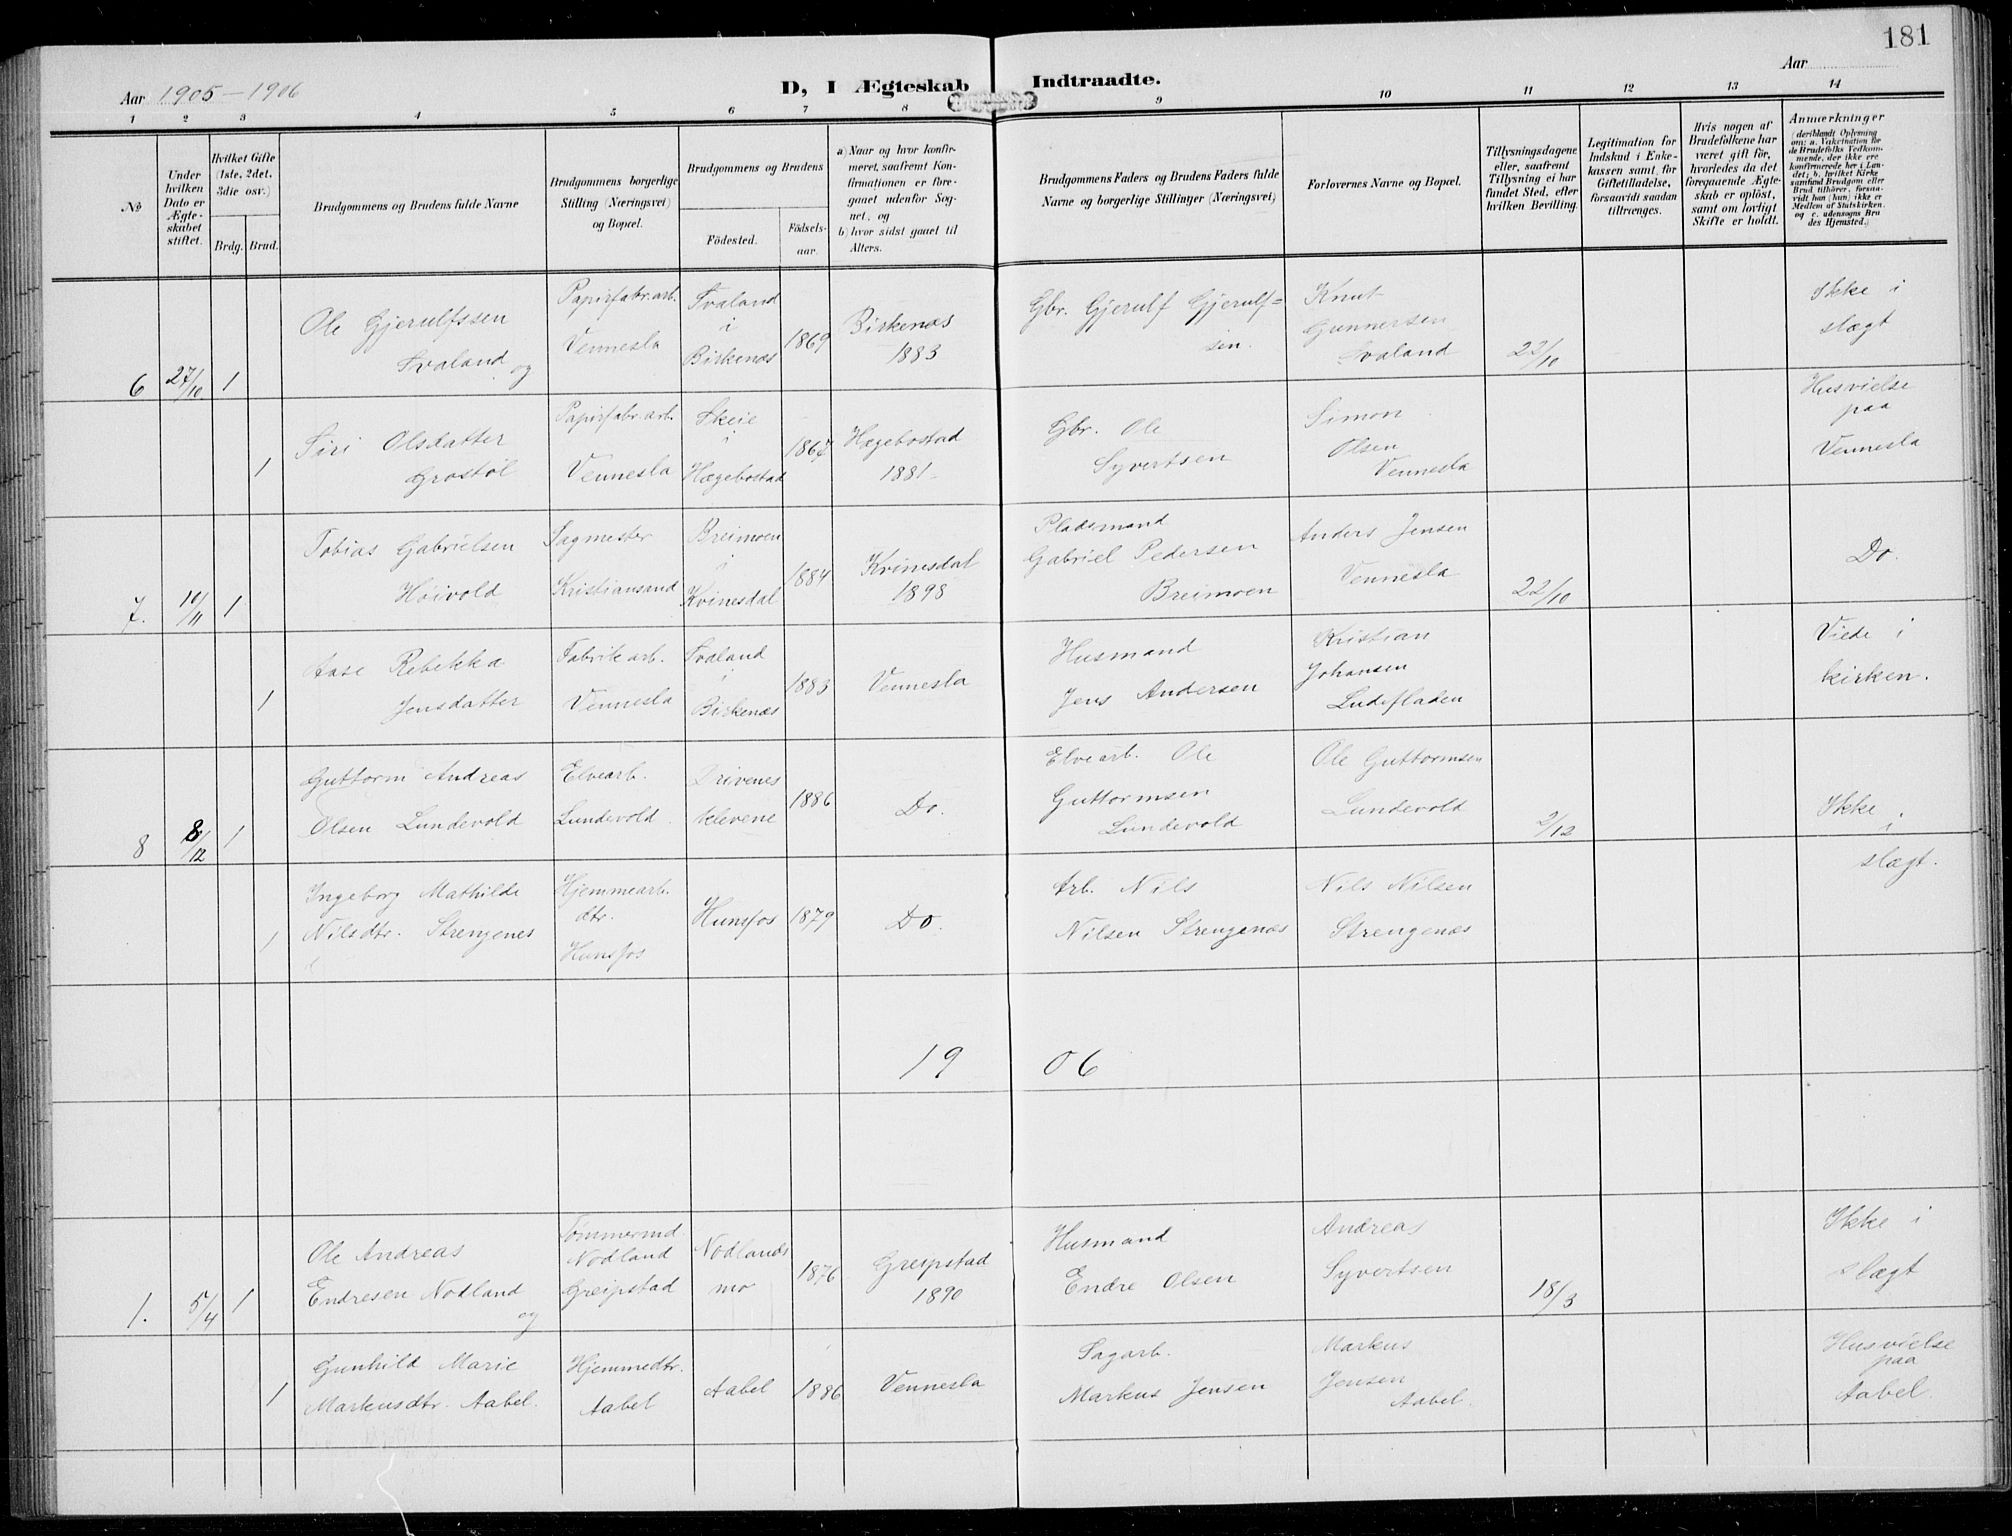 181
Aar 1905-1906
D, I Ægteskab Indtraadte.
Aar
1 2 3 4 5 6 7 8 9 10 11 12 13 14
No
Under hvilken Dato er Ægteskabet stiftet.
Hvilket Gifte (1ste, 2det, 3die osv.)
Brdg. Brud.
Brudgommens og Brudens fulde Navne
Brudgommens borgerlige Stilling (Næringsvei) og Bopæl.
Brudgommens og Brudens
Födested.
Födselsaar.
a) Naar og hvor konfirmeret, saafremt Konfirmationen er foregaaet udenfor Sognet, og
b) hvor sidst gaaet til Alters.
Brudgommens Faders og Brudens Faders fulde Navne og borgerlige Stillinger (Næringsvei)
Forlovernes Navne og Bopæl.
Tillysningsdagene eller, saafremt Tillysning ei har fundet Sted, efter hvilken Bevilling.
Legitimation for Indskud i Enkekassen samt for Giftetilladelse, forsaavidt saadan tiltrænges.
Hvis nogen af Brudefolkene har været gift för, hvorledes da det foregaaende Ægteskab er oplöst, samt om lovligt Skifte er holdt.
Anmærkninger
(deriblandt Oplysning om: a. Vakcination för de Brudefolks Vedkommende, der ikke ere konfirmerede her i Landet; b. hvilket Kirkesamfund Brudgom eller Brud tilhörer, forsaavidt han (hun) ikke er Medlem af Statskirken, og c. udensogns Brudes Hjemsted.)
6 27/10 1
Ole Gjerulfssen
Svaland og
Papirfabr.arb.
Vennesla
Svaland
i
Birkenæs
1869
Birkenæs
1883
Gbr. Gjerulf Gjerulf=
sen.
Knut
Gunnersen
Svaland
22/10
Ikke i
slægt
1
Siri Olsdatter
Grostöl
Papirfabr.arb.
Vennesla
Skeie
i
Hægebostad
1867
Hægebostad
1881
Gbr. Ole
Syvertsen
Simon
Olsen
Vennesla
Husvielse
paa
Vennesla
7. 10/11 1
Tobias Gabrielsen
Höivold
Sagmester
Kristiansand
Breimoen
i
Kvinesdal
1884
Kvinesdal
1898
Pladsmand
Gabriel Pedersen
Breimoen
Anders Jensen
Vennesla
22/10
Do.
1
Aase Rebekka
Jensdatter
Fabrikarb.
Vennesla
Svaland
i
Birkenæs
1883
Vennesla
Husmand
Jens Andersen
Kristian
Johansen
Ludefladen
Viede i
kirken.
8 8/12 1
Guttorm Andreas
Olsen Lundevold
Elvearb.
Lundevold.
Drivenes
klevene
1886
Do.
Elvearb. Ole
Guttormsen
Lundevold
Ole Guttormsen
Lundevold
2/12
Ikke
i
slægt.
1
Ingeborg Mathilde
Nilsdtr. Strengenes
Hjemmearb.
dtr.
Hunsfos
Hunsfos
1879
Do.
Arb. Nils
Nilsen Strengenæs
Nils Nilsen
Strengenæs
19 06
1. 5/4 1
Ole Andreas
Endresen Nodland
og
Tömmermd
Nodland
Greipstad
Nodlands
mo
1876
Greipstad
1890
Husmand
Endre Olsen
Andreas
Syvertsen
18/3
Ikke i
slægt
1
Gunhild Marie
Markusdtr. Aabel.
Hjemmedtr.
Aabel
Aabel
1886
Vennesla
Sagarb.
Markus Jensen
Markus
Jensen
Aabel.
Husvielse
paa
Aabel.